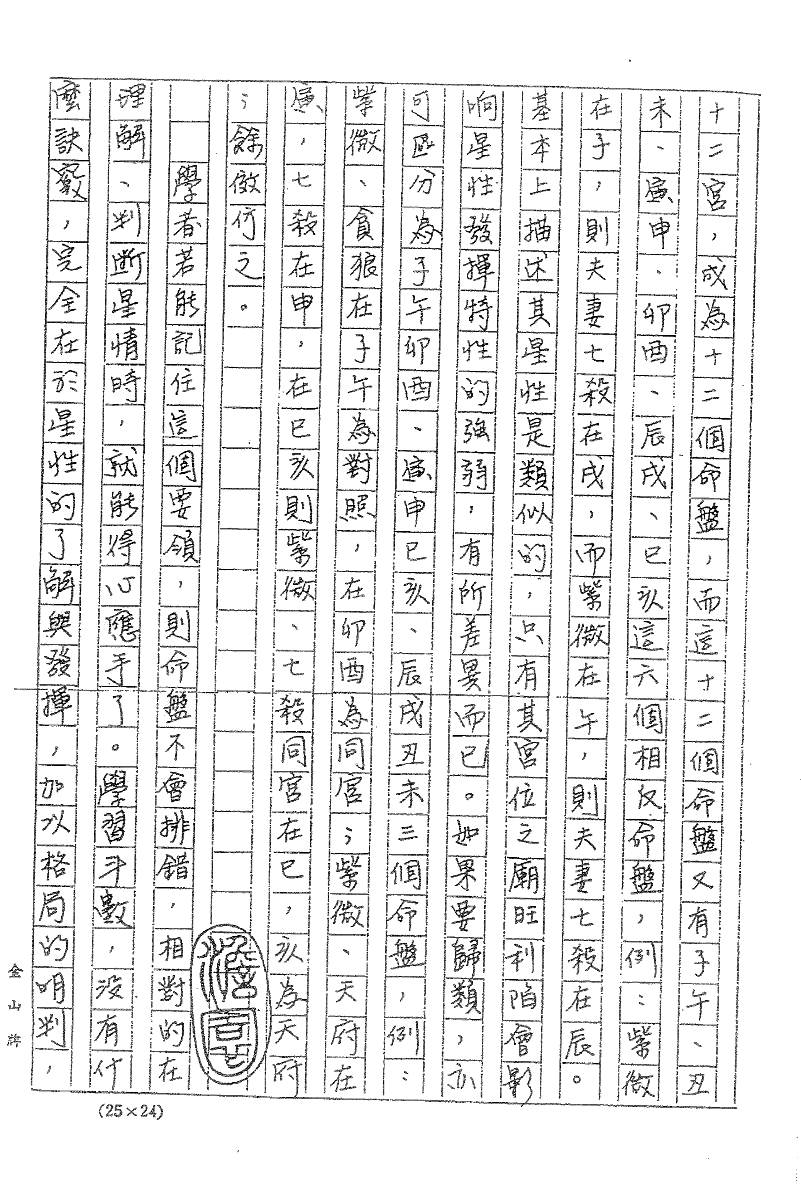 十二宮，成為十二個命盤，而這十二個命盤又有子午、丑
未、寅申、卯酉、辰戌、巳亥這六個相反命盤，例：紫微
在子，則夫妻七殺在戌，而紫微在午，則夫妻七殺在辰。
基本上描述其星性是類似的，只有其宮位之廟旺利陷會影
响星性發揮特性的強弱，有所差異而已。如果要歸類，亦
可區分為子午卯酉、寅申巳亥、辰戌丑未三個命盤，例：
紫微、貪狼在子午為對照，在卯酉為同宮；紫微、天府在
寅，七殺在申，在巳亥則紫微、七殺同宮在巳，亥為天府
；餘倣何之。
學者若能記住這個要領，則命盤不會排錯，相對的在
理解、判斷星情時，就能得心應手了。學習斗數，沒有什
麼訣竅，完全在於星性的了解與發揮，加以格局的明判，
金山牌
(25×24)